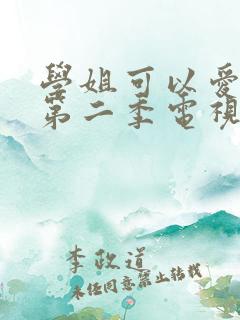 學姐可以愛
第二季電視
李政道
未經同意禁止轉載